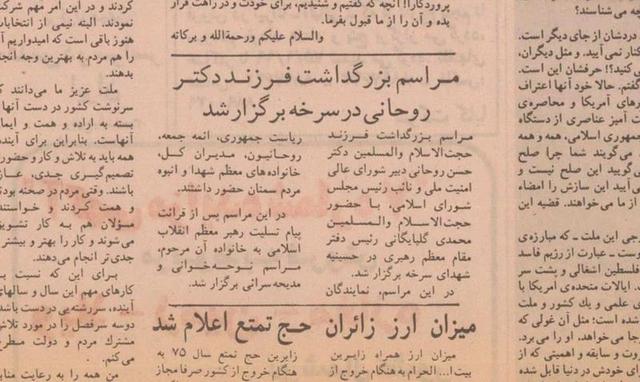 پروردگارا! آنچه که گفتیم و شنیدیم، برای خودت و در راهت قرار
بده و آن را از ما قبول بفرما.
والسلام علیکم ورحمةالله و برکاته
مراسم بزرگداشت فرزند دکتر
روحانی در سرخه برگزار شد
مراسم بزرگداشت فرزند
حجت‌الاسلام والمسلمین دکتر
حسن روحانی دبیر شورای عالی
امنیت ملی و نائب رئیس مجلس
شورای اسلامی، با حضور
حجت‌الاسلام والمسلمین
محمدی گلپایگانی رئیس دفتر
مقام معظم رهبری در حسینیه
شهدای سرخه برگزار شد.
در این مراسم، نمایندگان
ریاست جمهوری، ائمه جمعه،
روحانیون، مدیران کل،
خانواده‌های معظم شهدا و انبوه
مردم سمنان حضور داشتند.
در این مراسم پس از قرائت
پیام تسلیت رهبر معظم انقلاب
اسلامی به خانواده آن مرحوم،
مراسم نوحه‌خوانی و
مدیحه‌سرائی برگزار شد.
میزان ارز زائران حج تمتع اعلام شد
میزان ارز همراه زایرین
بیت... الحرام به هنگام خروج از
زایرین حج تمتع سال ۷۵ به
هنگام خروج از کشور صرفا مجاز
کردند و در این امر مهم شرکت
نمودند. البته نیمی از انتخابات
هنوز باقی است که امیدواریم آن
را هم مردم به بهترین وجه انجام
بدهند.
ملت عزیز ما می‌دانند که
سرنوشت کشور در دست آنها
بسته به اراده و همت و ایمان
آنهاست. بنابراین برای آینده
همه باید به تلاش و کار و حضور
تصمیم‌گیری جدی، عازم
باشند. وقتی مردم در صحنه بودند
و همت کردند و خواستند
مسؤلان هم به کار تشویق
می‌شوند و کار را بهتر و بیشتر و
جدی‌تر انجام می‌دهند.
برای این که نسبت به
کارهای مهم این سال و سالهای
آینده، سررشته‌یی در دست باشد
دوسه سرفصل را در مورد تلاش
مشترك مردم و دولت مطرح
می‌کنم.
من همه را به رعایت
چه می‌شناسند؟
دردشان از جای دیگر است.
کنار نمی‌آیید. و مثل دیگران،
می‌کنید؟! حرفشان این است.
گفتم. حالا خود آنها اعتراف
های آمریکا و محاصره‌ی
آمیز عناصری از دستگاه
جمهوری اسلامی، همه و همه
می‌گویند شما چرا صلح
گویید این صلح نیست و
آیید این سازش را امضاء
از ما می‌خواهند. قضیه این
این ملت ـ که مبارزه‌ی
ـ عبارت از رژیم فاسد
فلسطین اشغالی و پشت سر
ایالات متحده‌ی آمریکا با
علمی و یك کشور و ملت
شده است؛ مثل آن غولی که
جا می‌خواهد. او را می‌برد.
و سابقه و اهمیتی که از
خودش در دنیا قابل شده